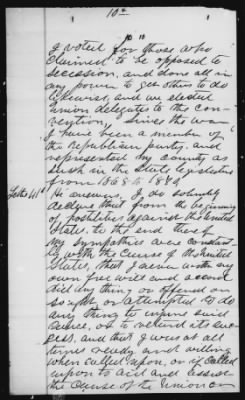 10"
10
I voted for those who
claimed to be opposed to
secession, and done all in
my power to get others to do
likewise, and we elected
Union delegates to the con-
vention. Since the war
I have been a member of
the republican party, and
represented my county as
such in the State legislature
from 1868 to 1872
To the 41st he answers, I do solemnly
declare that from the beginning
of hostilities against the United
States, to the end thereof
my sympathies were constant-
ly with the cause of the United
States, that I never with my
own free will and accord
did any thing or offered or
sought, or attempted to do
any thing to injure said
cause, or to retard its suc-
cess, and that I was at all
times ready and willing
when called upon, or if called
upon to aid and assist
the cause of the Union or